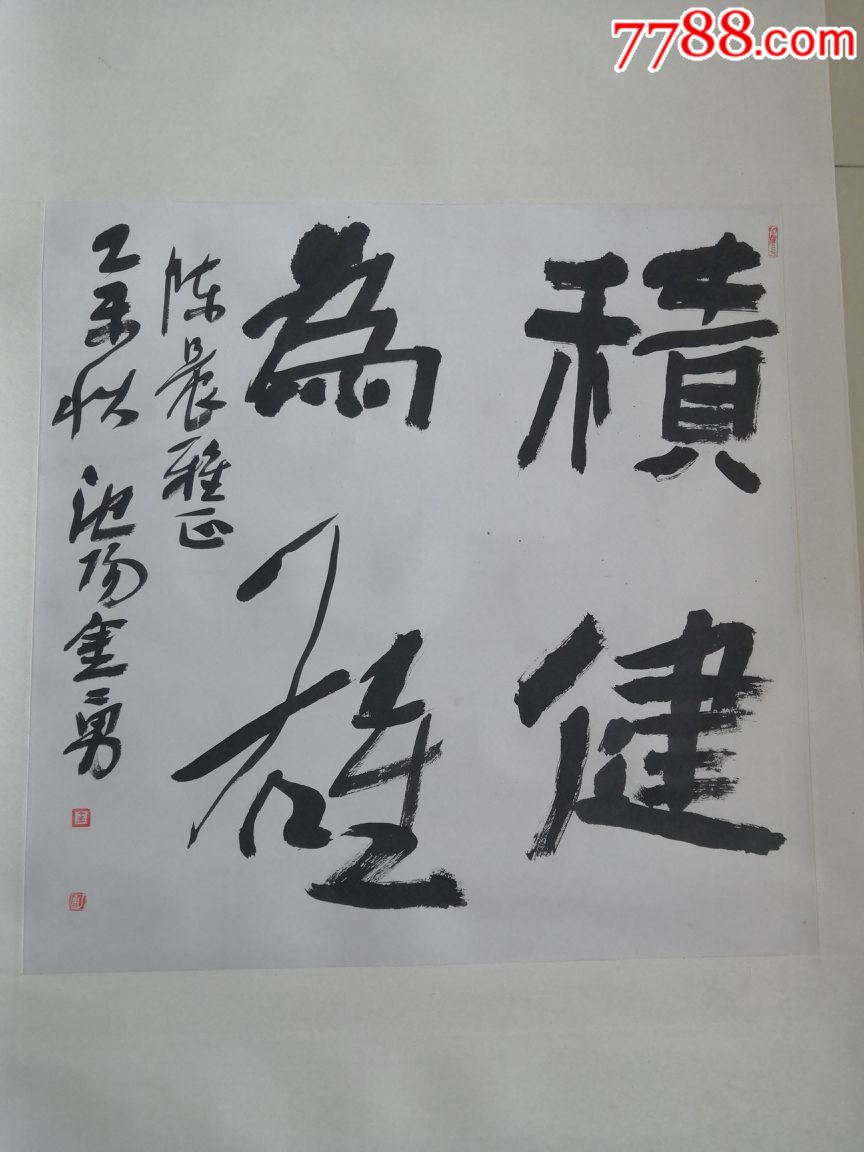 7788.com
積健
為雄
陳晨雅正
乙未秋池陽金勇